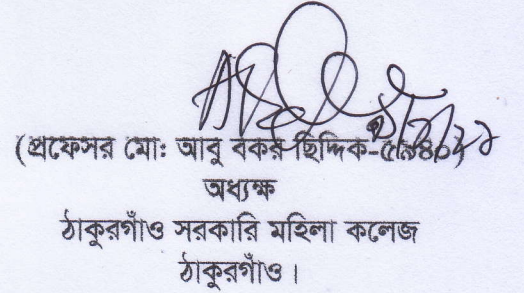 (প্রফেসর মো: আবু বকর ছিদ্দিক-
অধ্যক্ষ
ঠাকুরগাঁও সরকারি মহিলা কলেজ
ঠাকুরগাঁও।